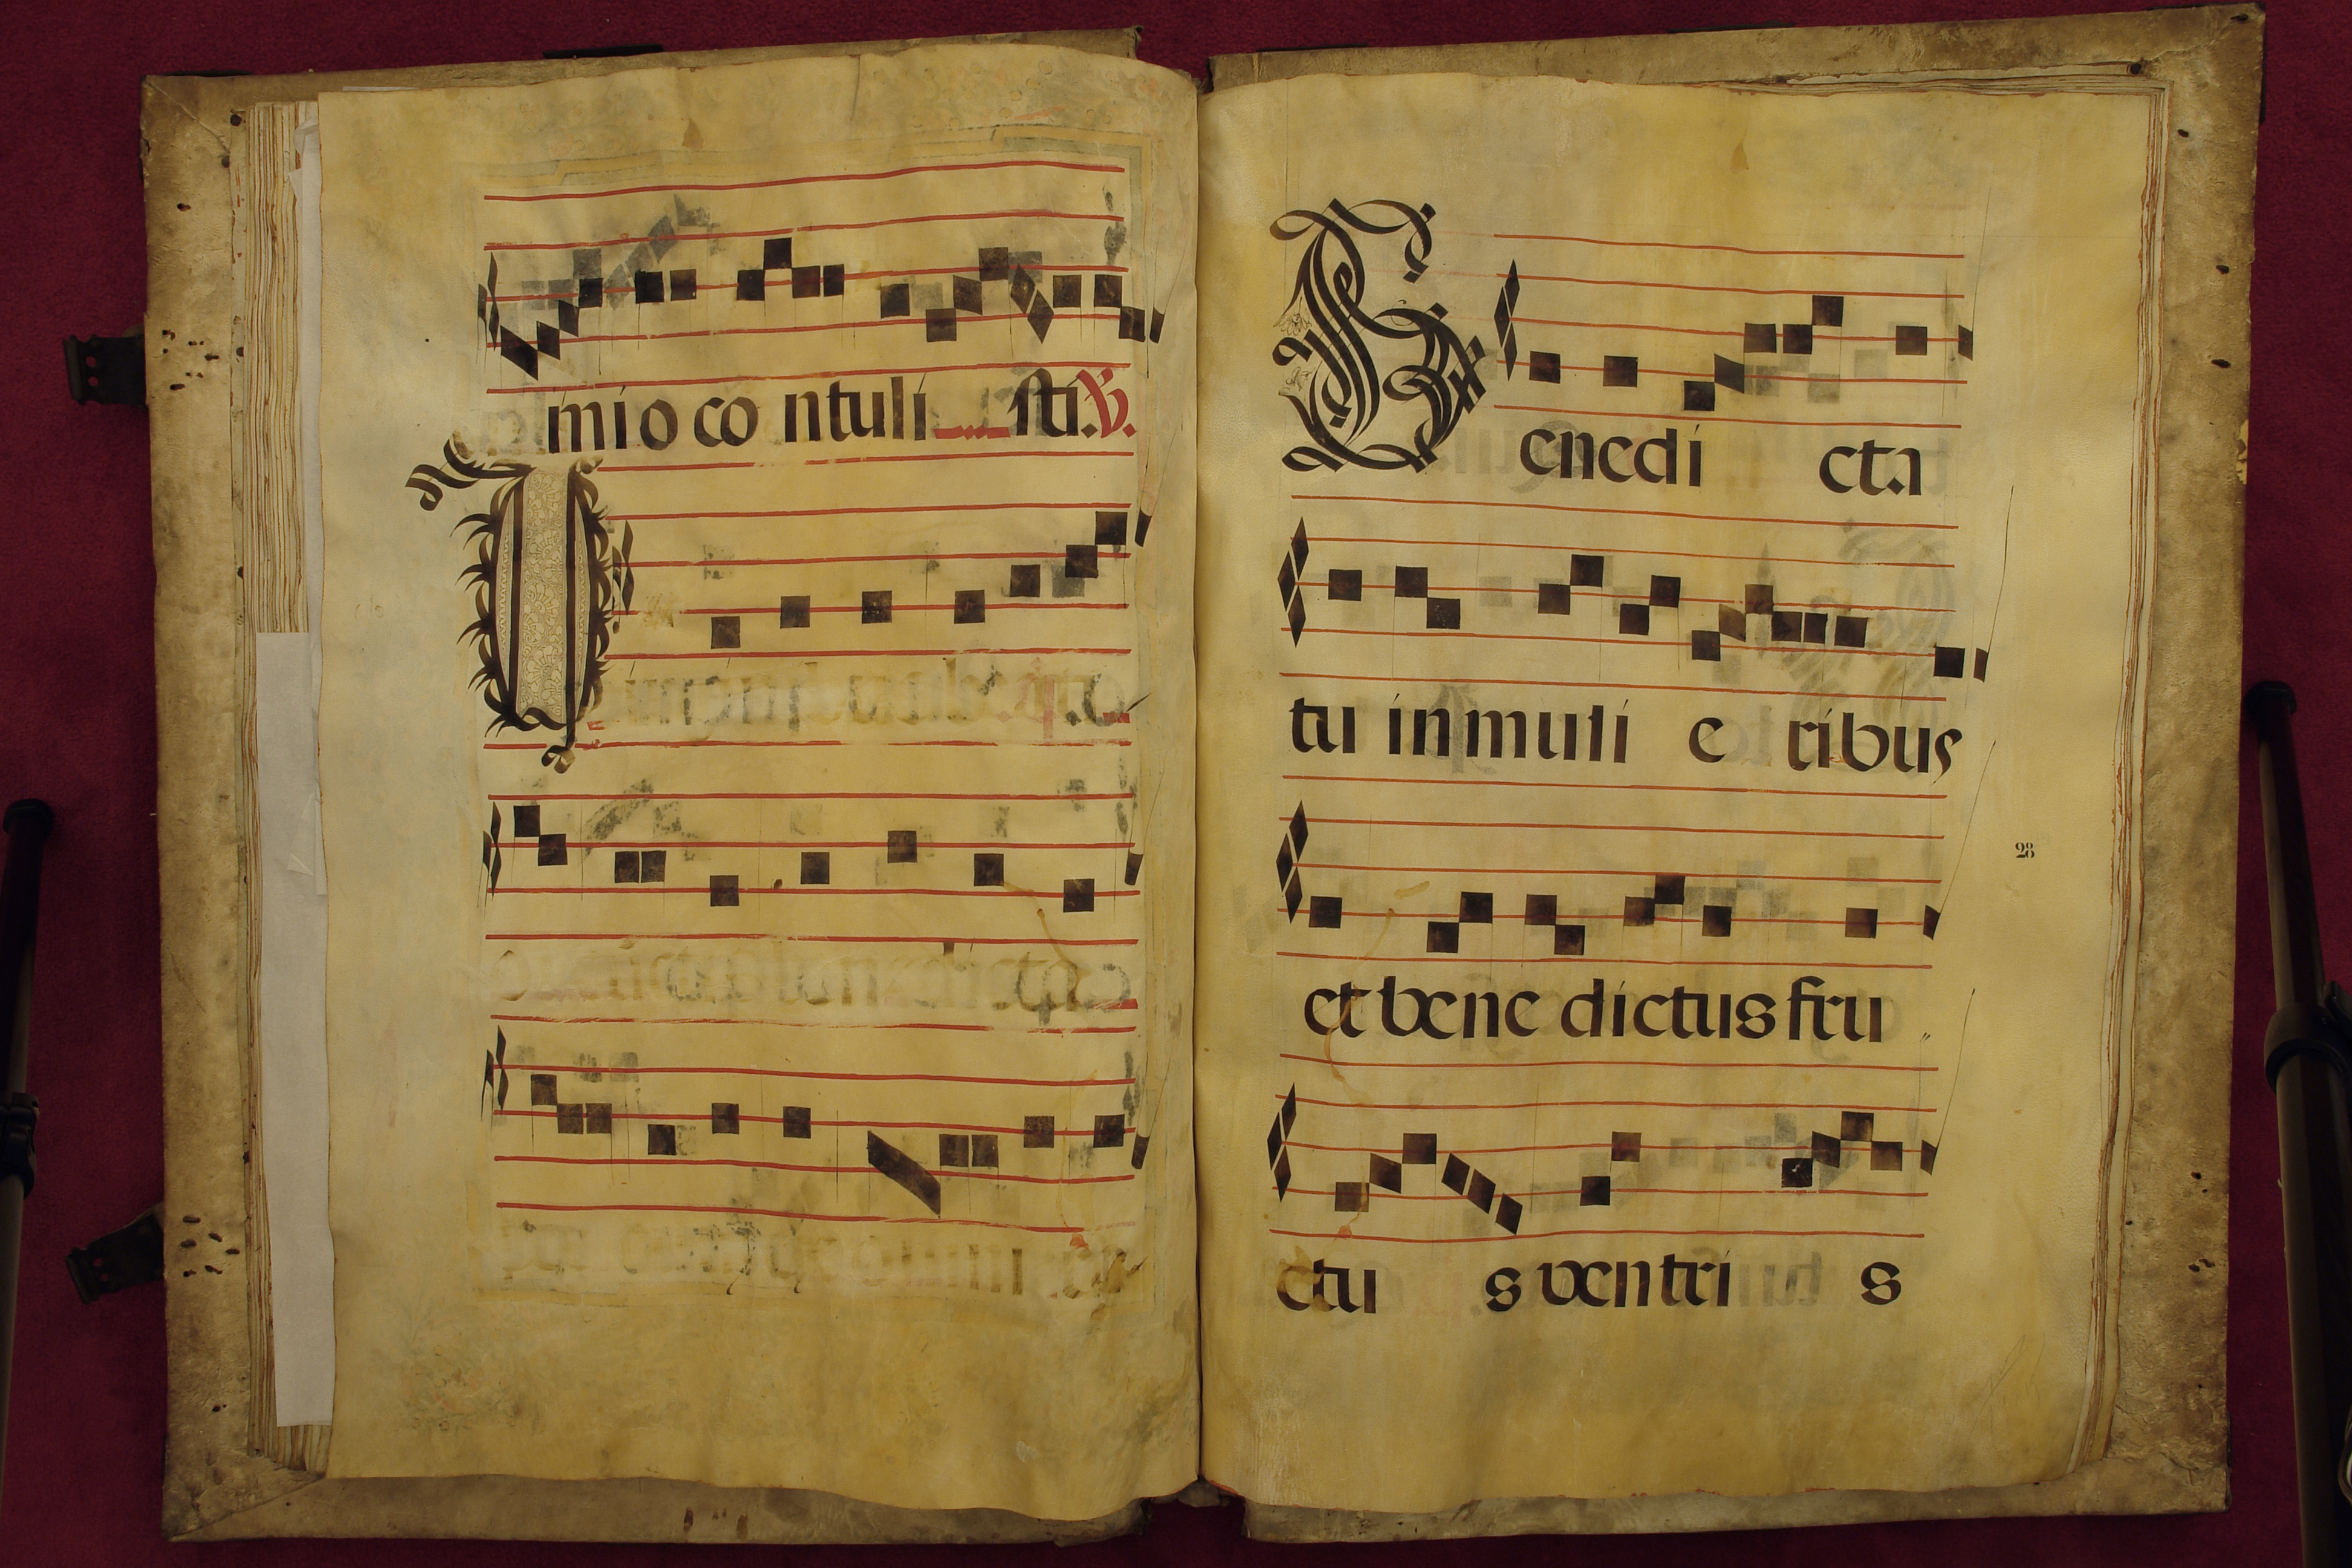 imio co ntuli sti. V.
T
Benedi cta
tu in muli e ribus
28
et bene dictus fru
ctu s ventri s